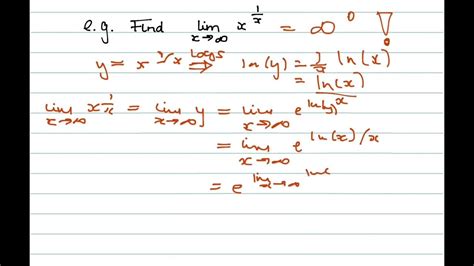 e.g. Find lim x→∞ x^(1/x) = ∞^0 !
y = x^(1/x) logs ⇒ ln(y) = 1/x ln(x)
= ln(x)/x
lim x→∞ x^(1/x) = lim x→∞ y = lim x→∞ e^
= lim x→∞ e^(ln(x)/x)
= e^(lim x→∞